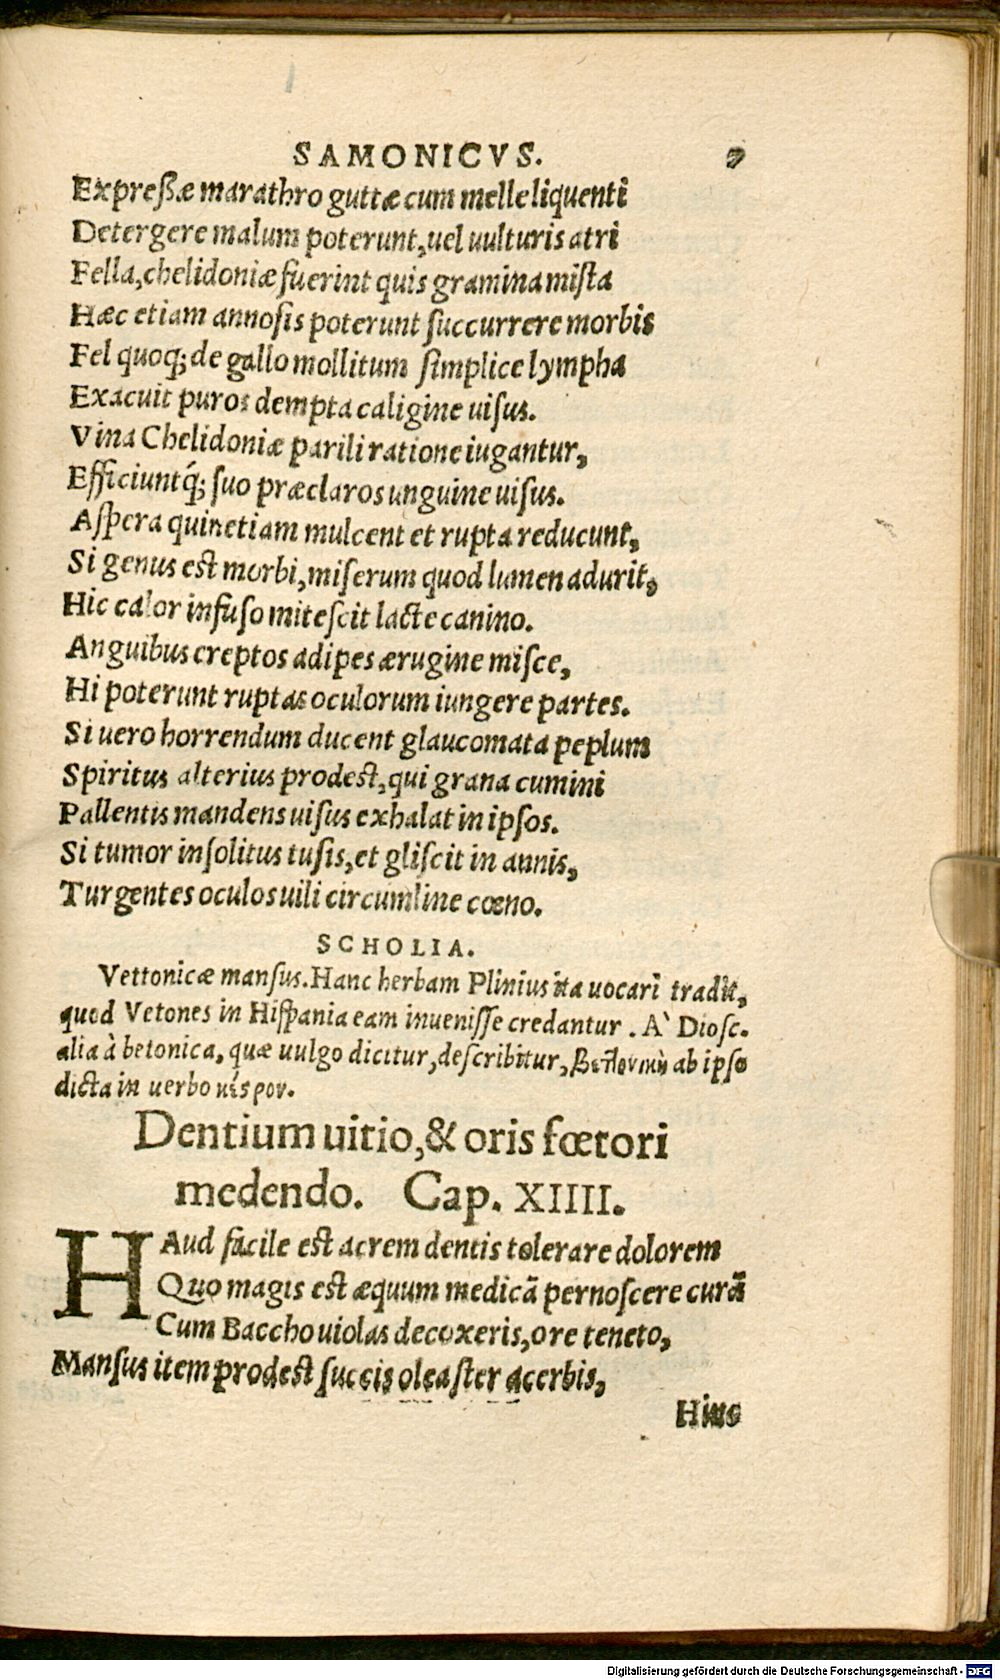 SAMONICVS. 9
Expreßæ marathro guttæ cum melle liquenti
Detergere malum poterunt, uel uulturis atri
Fella, chelidoniæ fuerint quis gramina mista
Hæc etiam annosis poterunt succurrere morbis
Fel quoq; de gallo mollitum simplice lympha
Exacuit puros dempta caligine uisus.
Vina Chelidoniæ parili ratione iugantur,
Efficiuntq́; suo præclaros unguine uisus.
Aspera quinetiam mulcent et rupta reducunt,
Si genus est morbi, miserum quod lumen adurit,
Hic calor infuso mitescit lacte canino.
Anguibus ereptos adipes ærugine misce,
Hi poterunt ruptas oculorum iungere partes.
Si uero horrendum ducent glaucomata peplum
Spiritus alterius prodest, qui grana cumini
Pallentis mandens uisus exhalat in ipsos.
Si tumor insolitus tusis, et gliscit in annis,
Turgentes oculos uili circumline cœno.
SCHOLIA.
Vettonicæ mansus. Hanc herbam Plinius ita uocari tradit,
quod Vetones in Hispania eam inuenisse credantur. A` Diosc.
alia à betonica, quæ uulgo dicitur, describitur, ab ipso
dicta in uerbo
Dentium uitio, & oris fœtori
medendo. Cap. XIIII.
HAud facile est acrem dentis tolerare dolorem
Quo magis est æquum medicã pernoscere curã
Cum Baccho uiolas decoxeris, ore teneto,
Mansus item prodest succis oleaster acerbis,
Hinc
Digitalisierung gefördert durch die Deutsche Forschungsgemeinschaft - DFG